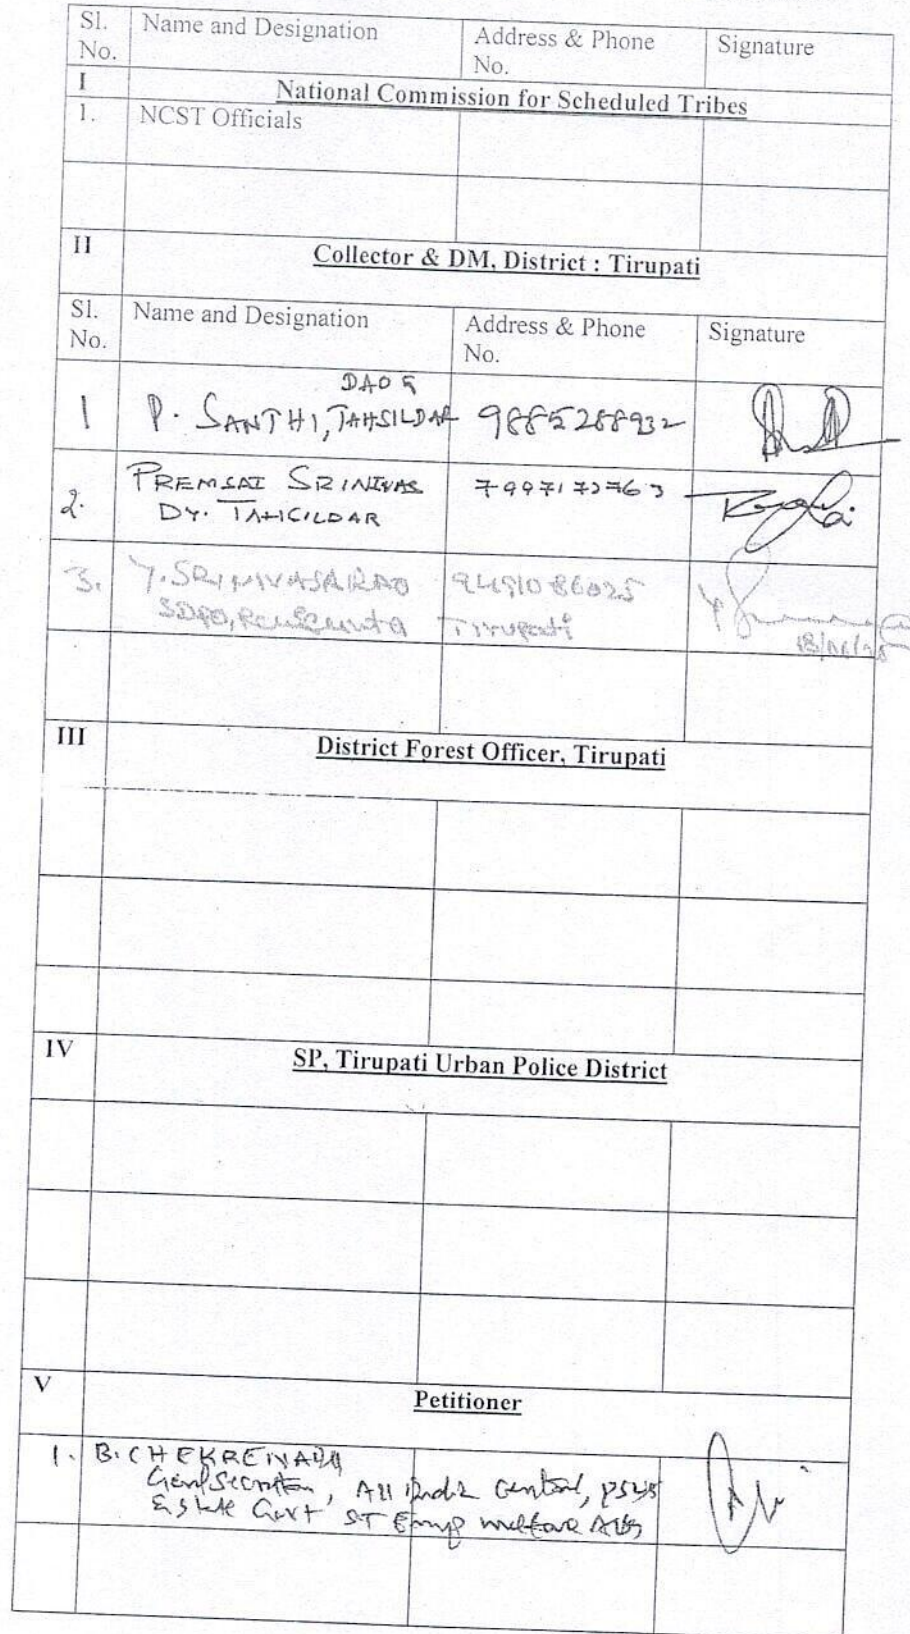 Sl. No. Name and Designation Address & Phone No. Signature
I National Commission for Scheduled Tribes
1. NCST Officials
II Collector & DM, District : Tirupati
Sl. No. Name and Designation Address & Phone No. Signature
DAO
1 P. SANTHI, TAHSILDAR 9885288932
2. PREMSAI SRINIVAS 7997172763
DY. TAHSILDAR
3. Y. SRINIVASA RAO
SDPO, Tirupati
III District Forest Officer, Tirupati
IV SP, Tirupati Urban Police District
V Petitioner
1. B. CHEKRENAYA
All India Central,
& State Govt ST Emp welfare